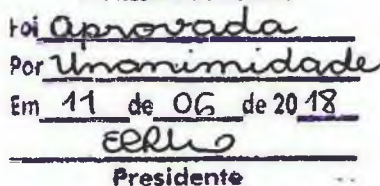 Foi aprovada
Por Unanimidade
Em 11 de 06 de 2018
Presidente